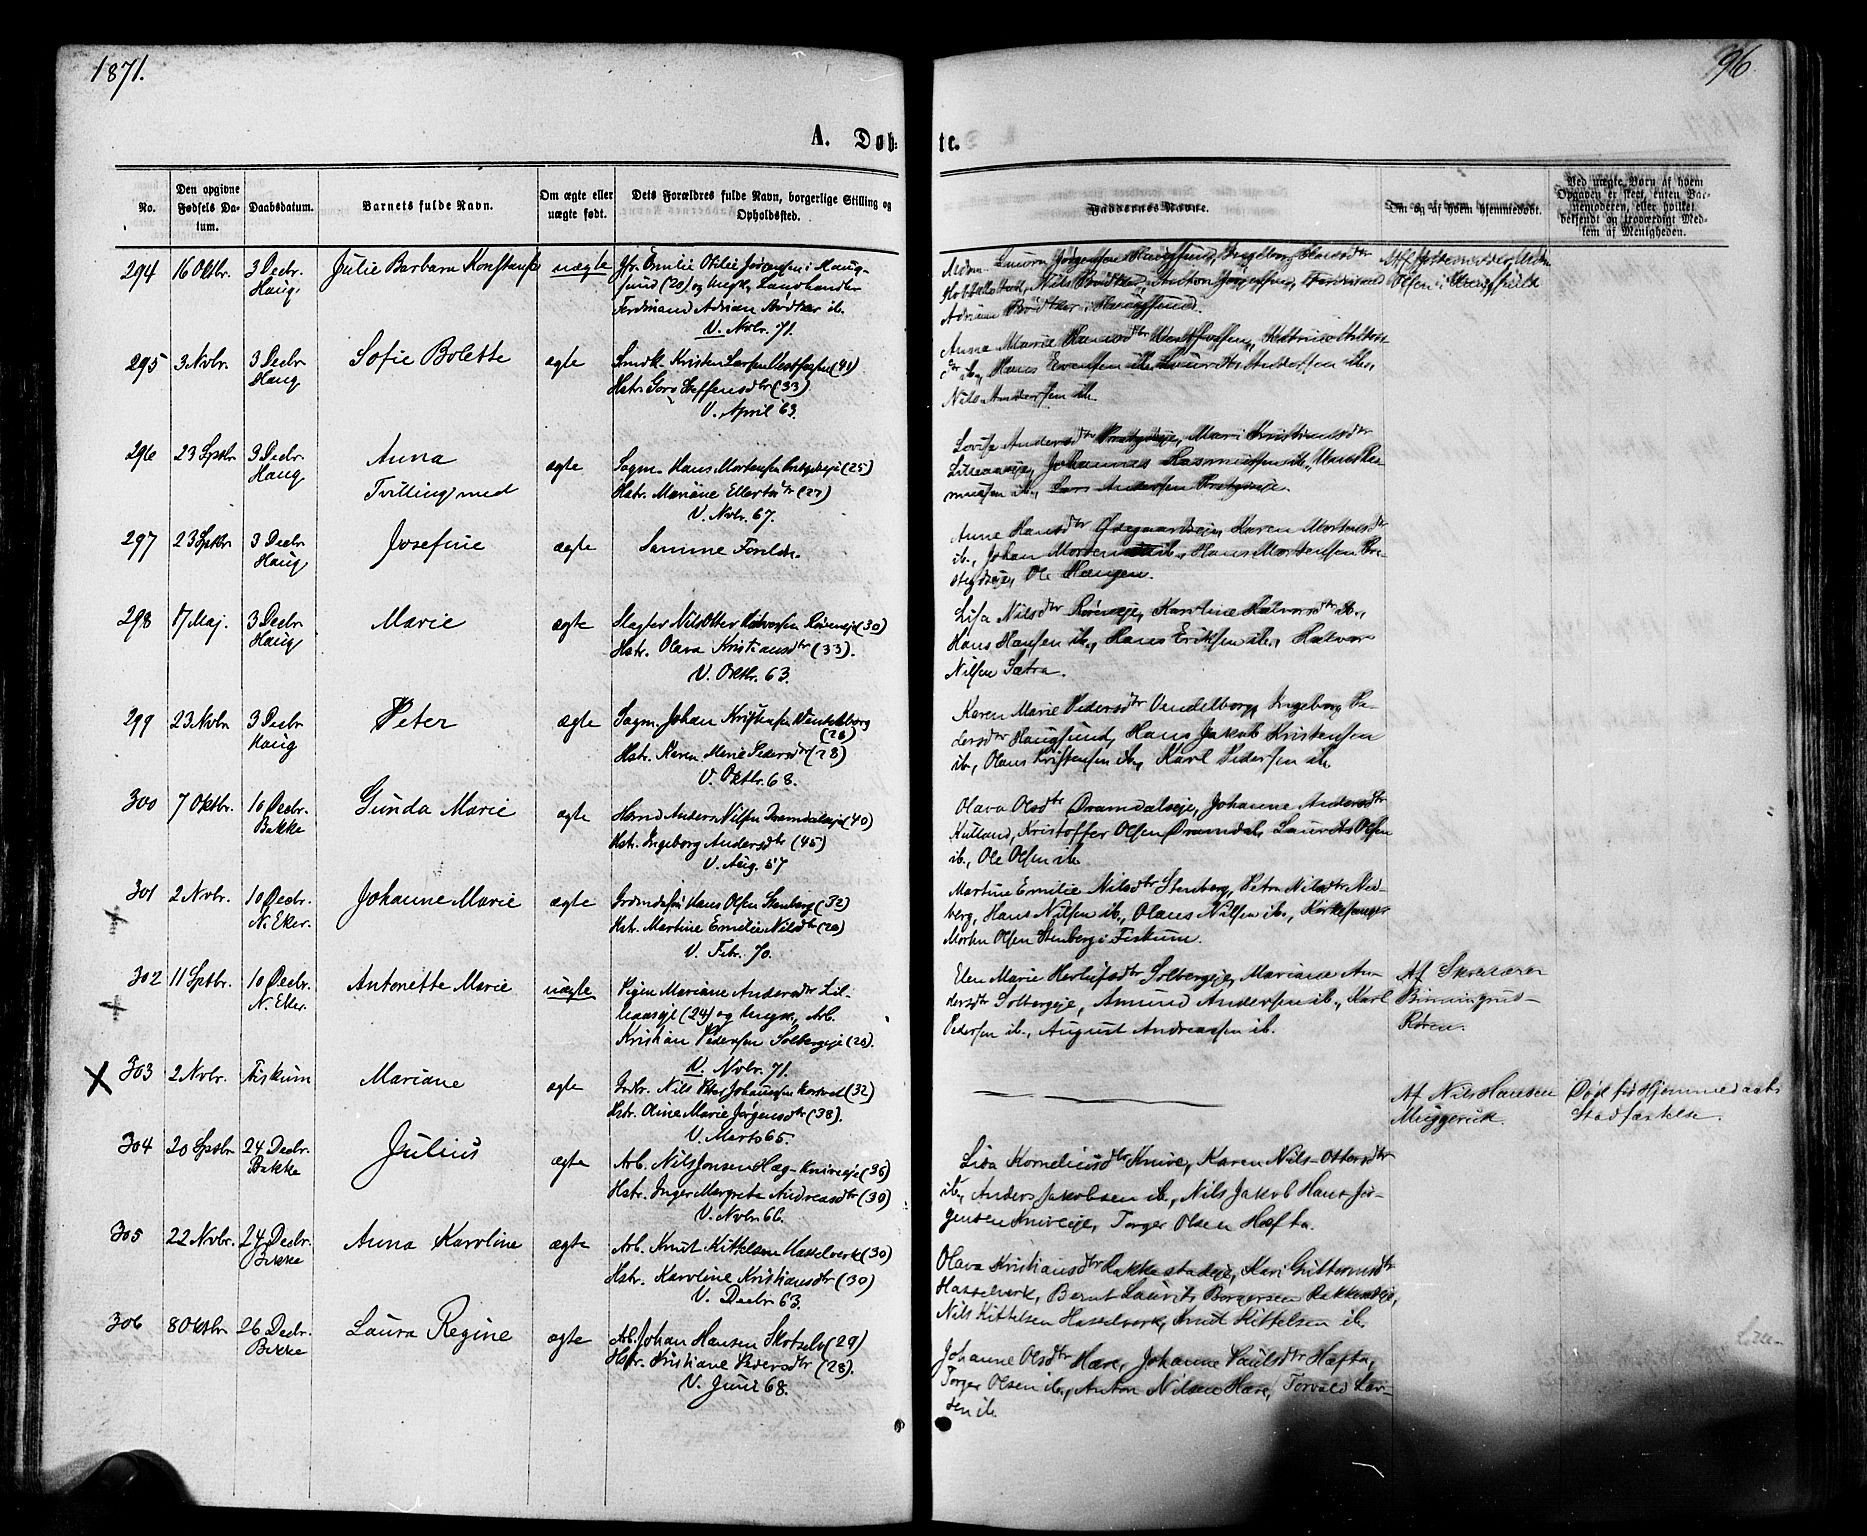 1871.
96.
A. Døb-
te.
No.
Den opgivne Fødsels Datum.
Daabsdatum.
Barnets fulde Navn.
Om ægte eller uægte født.
Dets Forældres fulde Navn, borgerlige Stilling og Opholdssted.
Faddernes Navne.
Om og af hvem hjemmedøbt.
Ved uægte Børn af hvem Opgaven er skeet, enten Barnemoderen, eller hvilket bekjendt og troværdigt Medlem af Menigheden.
294 16 Oktbr. 3 Decbr. Haug Julie Barbara Konstanse uægte
Jfr. Emilie Otilie Jørgensen i Haug-
sund (20) og Ungk. Landhandler
Ferdinand Adrian Bødtker ib.
V. Novbr. 71.
Adrian Bødtker i Haugsund.
295 3 Novbr. 3 Decbr. Haug Sofie Bolette ægte
Smdk. Kristen Larsen Vestfossen (41)
Hstr. Goro Steffensdtr (33)
V. April 63.
Nils Andersen ib.
296 23 Sptbr. 3 Decbr. Haug Anna
Tvilling med
ægte
Sagm. Hans Mortensen (25)
Hstr. Mariane Ellertsdtr (27)
V. Novbr. 67.
Lovise Andersdtr Mari Kristiansdtr
Johannes Rasmussen ib.,
Lars Andersen
297 23 Sptbr. 3 Decbr. Haug Josefine ægte Samme Foreldr.
Anne Hansdtr Karen Mortensdtr
ib., Johan Mortensen ib., Hans Mortensen
Ole Haugen.
298 17 Maj. 3 Decbr. Haug Marie ægte
Slagter Nils Otter Halvorsen (30)
Hstr. Olava Kristiansdtr (33).
V. Oktbr. 63.
Lisa Nilsdtr Karoline Halvorsdtr ib.,
Hans Hansen ib., Hans Eriksen ib., Halvor
Nilsen Sætra.
299 23 Novbr. 3 Decbr Haug Peter ægte
Sagm. Johan Kristensen Vendelborg
(26)
Hstr. Karen Marie Pedersdtr (28)
V. Oktbr. 68.
Karen Marie Pedersdtr Vendelborg, Ingeborg Pe-
dersdtr Haugsund, Hans Jakob Kristensen
ib., Olaus Kristensen ib., Karl Pedersen ib.
300 7 Oktbr. 10 Decbr. Bakke Gunda Marie ægte
Hmd Anders Nilsen Dramdalseje (40)
Hstr. Ingeborg Andersdtr (45)
V. Aug. 57
Olava Olsdtr Dramdalseje, Johanne Andersdtr
Kulland, Kristoffer Olsen Dramdal, Laurits Olsen
ib., Ole Olsen ib.
301 2 Novbr. 10 Decbr. N. Eker. Johanne Marie ægte
Hans Olsen Stenberg (32)
Hstr. Martine Emilie Nilsdtr (20)
V. Febr. 70.
Martine Emilie Nilsdtr Stenberg, Petra Nilsdtr Ned-
berg, Hans Nilsen ib., Olaus Nilsen ib., Kirkesanger
Morten Olsen Stenberg i Fiskum.
302 11 Sptbr. 10 Decbr. N. Eker. Antonette Marie uægte
Pigen Mariane Andersdtr Lil-
leaaseje (24) og Ungk., Arb.
Kristian Pedersen Solbergeje (20).
V. Novbr. 71.
Elen Marie Herlufsdtr Solbergeje, Mariane An-
dersdtr Solbergeje, Amund Andersen ib., Karl
Pedersen ib., August Andreassen ib.
Af
303 2 Novbr. Fiskum Mariane ægte
Nils Peter Johansen (32)
Hstr. Oline Marie Jørgensdtr (38).
V. Marts 65.
Af Nils Hansen
Muggerud.
Død før Hjemmedaabs
Stadfæstelse.
304 20 Sptbr. 24 Decbr. Bakke Julius ægte
Arb. Nils Jonsen Hæg-Kniveeje (36)
Hstr. Inger Margrete Andreasdtr (30)
V. Novbr. 66.
Lisa Korneliusdtr Knive, Karen Nils-Ottersdtr
ib., Anders Jakobsen ib., Nils Jakob Hans Jør-
gensen Kniveeje, Torger Olsen Hæfta.
305 22 Novbr. 24 Decbr. Bakke Anna Karoline ægte
Arb. Knut Kittelsen Hasselverk (30)
Hstr. Karoline Kristiansdtr (30)
V. Decbr 63.
Olava Kristiansdtr Bakkestadeje, Kari Guttormsdtr
Hasselverk, Bernt Laurits Borgersen
Nils Kittelsen Hasselverk, Knut Kittelsen ib.
306 8 Oktbr. 26 Decbr. Bakke Laura Regine ægte
Arb. Johan Hansen Skotselv (29)
Hstr. Kristiane Pedersdtr (28).
V. Juni 68.
Johanne Olsdtr Hære, Johanne Paulsdtr Hæfta,
Torger Olsen ib., Anton Nilsen Hære, Torvald Lar-
sen ib.